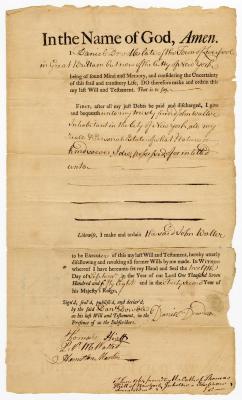 In the Name of God, Amen.
I Daniel Dow late of the Town of Liverpool
in Great Brittain but now of the City of New York
being of sound Mind and Memory, and considering the Uncertainty
of this frail and transitory Life, DO therefore make and ordain this
my last Will and Testament. That is to say,
FIRST, after all my just Debts be paid and discharged, I give
and bequeath unto my trusty friend John Waller
Inhabitant in the City of New York all my
Real & Personal Estate of what Nature
kind soever I do possess or intitled
unto
Likewise, I make and ordain the said John Waller
to be EXECUTOR of this my last Will and Testament, hereby utterly
disallowing and revoking all former Wills by me made. In WITNESS
whereof I have hereunto set my Hand and Seal the
Day of in the Year of our Lord One Thousand Seven
Hundred and fifty Eight and in the Year of
his Majesty's Reign.
Sign'd, seal'd, publish'd, and declar'd by
the said Daniel Dow
as his last Will and Testament, in the
Presence of us the Subscribers.
Daniel Dow
Thomas